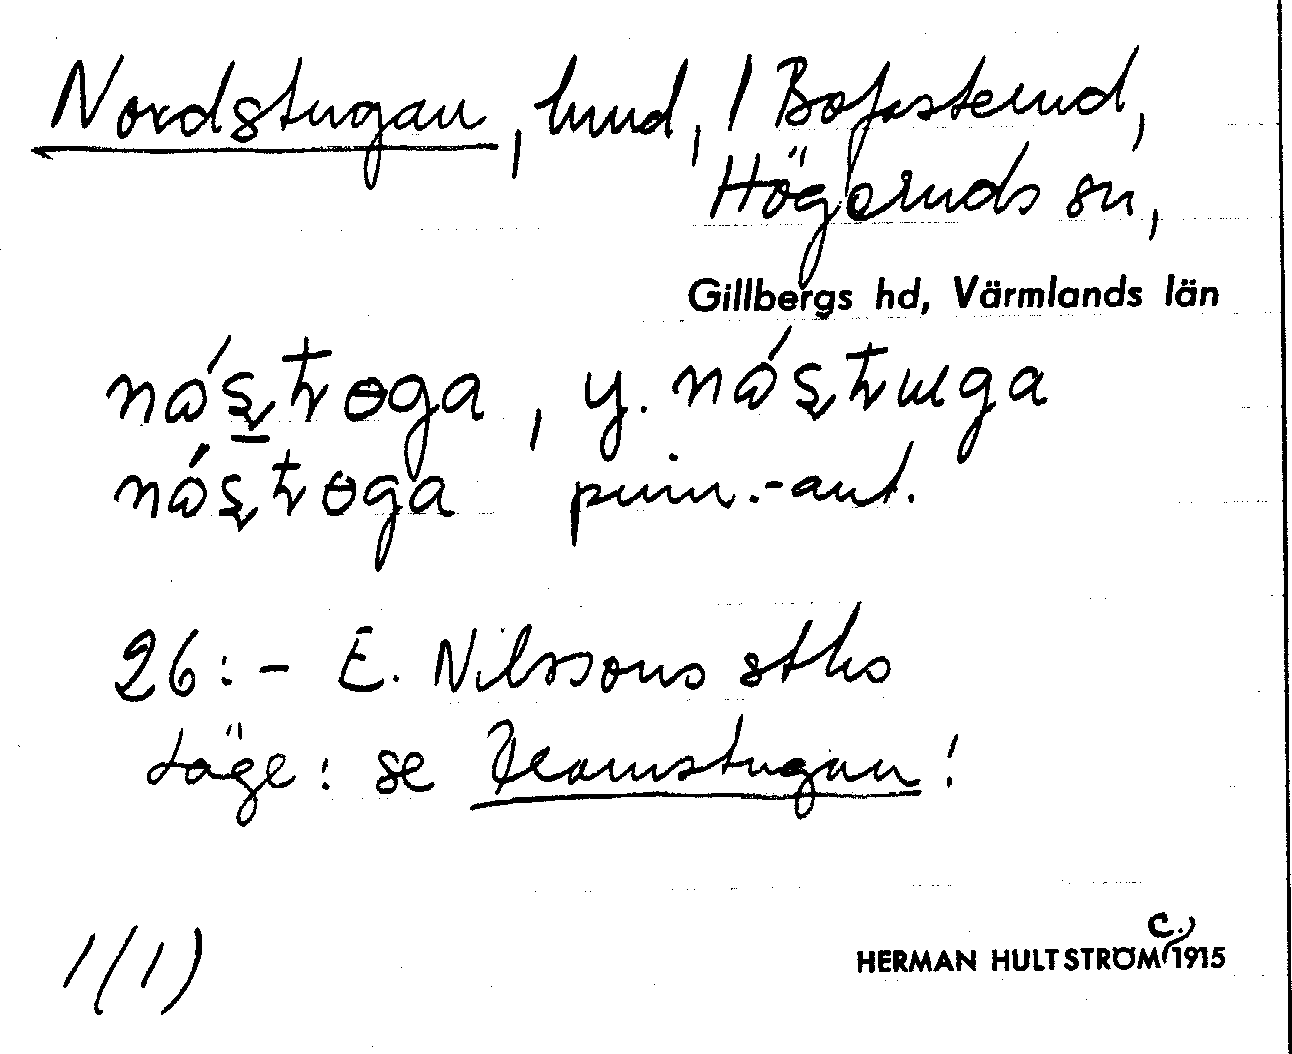 Nordstugan, hmd, / Bofasterud,
Högeruds sn,
Gillbergs hd, Värmlands län
nɷ́s̱tɵga, y. nɷ́stɯga
nɷ́stɵga prim.-ant.
26:- E. Nilssons sths
Läge: se Framstugan!
1(1)
HERMAN HULTSTRÖM c. 1915